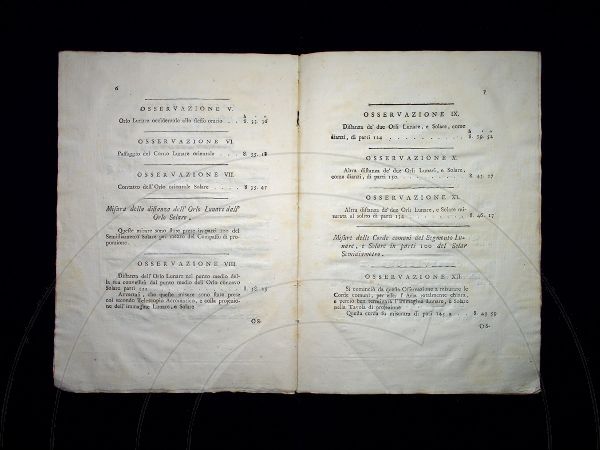 6
OSSERVAZIONE V.
Orlo Lunare occidentale allo stesso orario . . 8. 33. 36
OSSERVAZIONE VI.
Passaggio del Corno Lunare orientale . . 8. 35. 18
OSSERVAZIONE VII.
Contatto dell'Orlo orientale Solare . . . 8. 35. 47
Misura della distanza dell'Orlo Lunare dall'
Orlo Solare.
Queste misure sono state prese in parti 100 del
Semidiametro Solare per mezzo del Compasso di pro-
porzione.
OSSERVAZIONE VIII.
Distanza dell'Orlo Lunare nel punto medio del-
la sua convessità dal punto medio dell'Orlo concavo
Solare parti 8. 38. 25
Avvertasi, che queste misure sono state prese
nel secondo Telescopio Acromatico, e colla projezio-
ne dell'immagine Lunare, e Solare
OS-
7
OSSERVAZIONE IX.
Distanza de' due Orli Lunare, e Solare, come
dianzi, di parti 124 . . . . . . . . . 8. 39. 52
OSSERVAZIONE X.
Altra distanza de' due Orli Lunari, e Solare,
come dianzi, di parti 130. . . . . . . . 8. 43. 27
OSSERVAZIONE XI.
Altra distanza de' due Orli Lunare, e Solare mi-
surata al solito di parti 134 . . . . . . 8. 46. 17
Misure delle Corde comuni del Segmento Lu-
nare, e Solare in parti 100 del Solar
Semidiametro.
OSSERVAZIONE XII.
Si cominciò da questa Osservazione a misurare le
Corde comuni, per esser l'Aria totalmente chiara,
e perciò ben terminata l'immagine Lunare, e Solare
nella Tavola di projezione
Questa corda fu misurata di parti 145 8. 49. 59
OS-